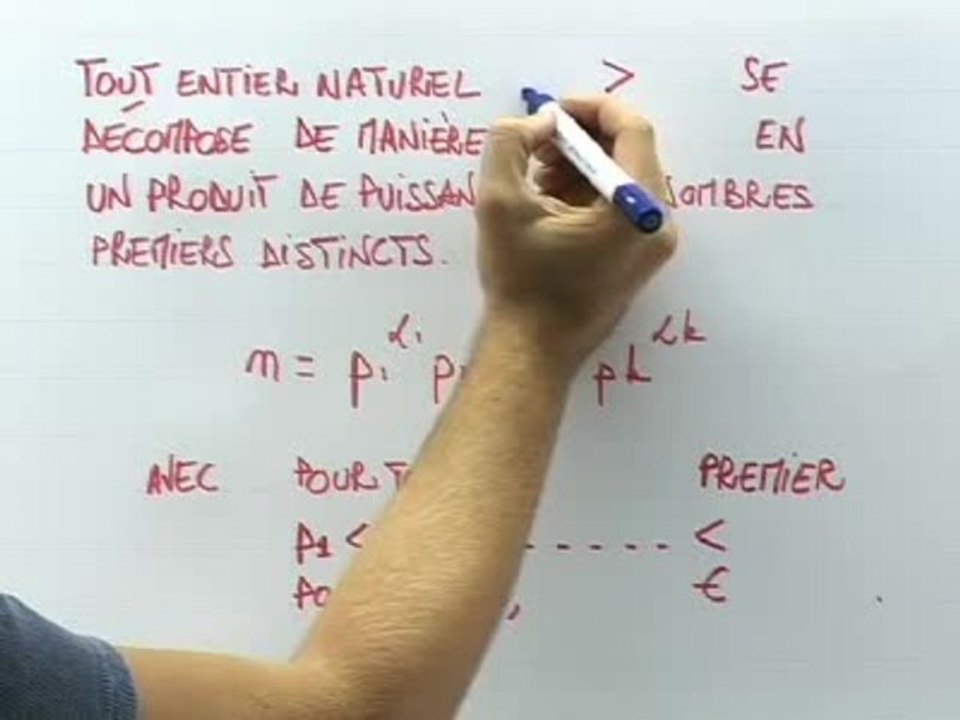 TOUT ENTIER NATUREL > SE
DÉCOMPOSE DE MANIÈRE EN
UN PRODUIT DE PUISSAN OMBRES
PREMIERS DISTINCTS.
n = p₁^α₁ p pk^αk
AVEC POUR T PREMIER
p₁ < ------ <
PO , €